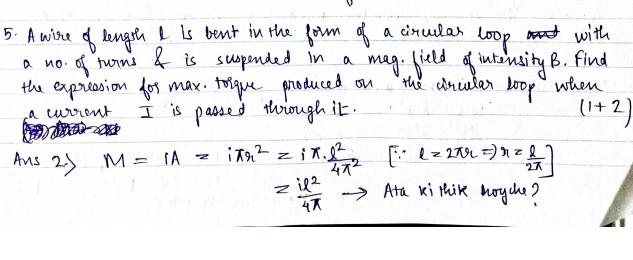 5. A wire of length l is bent in the form of a circular loop with
a no. of turns & is suspended in a mag. field of intensity B. Find
the expression for max. torque produced on the circular loop when
a current I is passed through it. (1+2)
Ans 2) M = iA = iπr² = iπ.l²/4π² [∵ l = 2πr ⇒ r = l/2π]
= il²/4π → Ata ki thik hoyche?